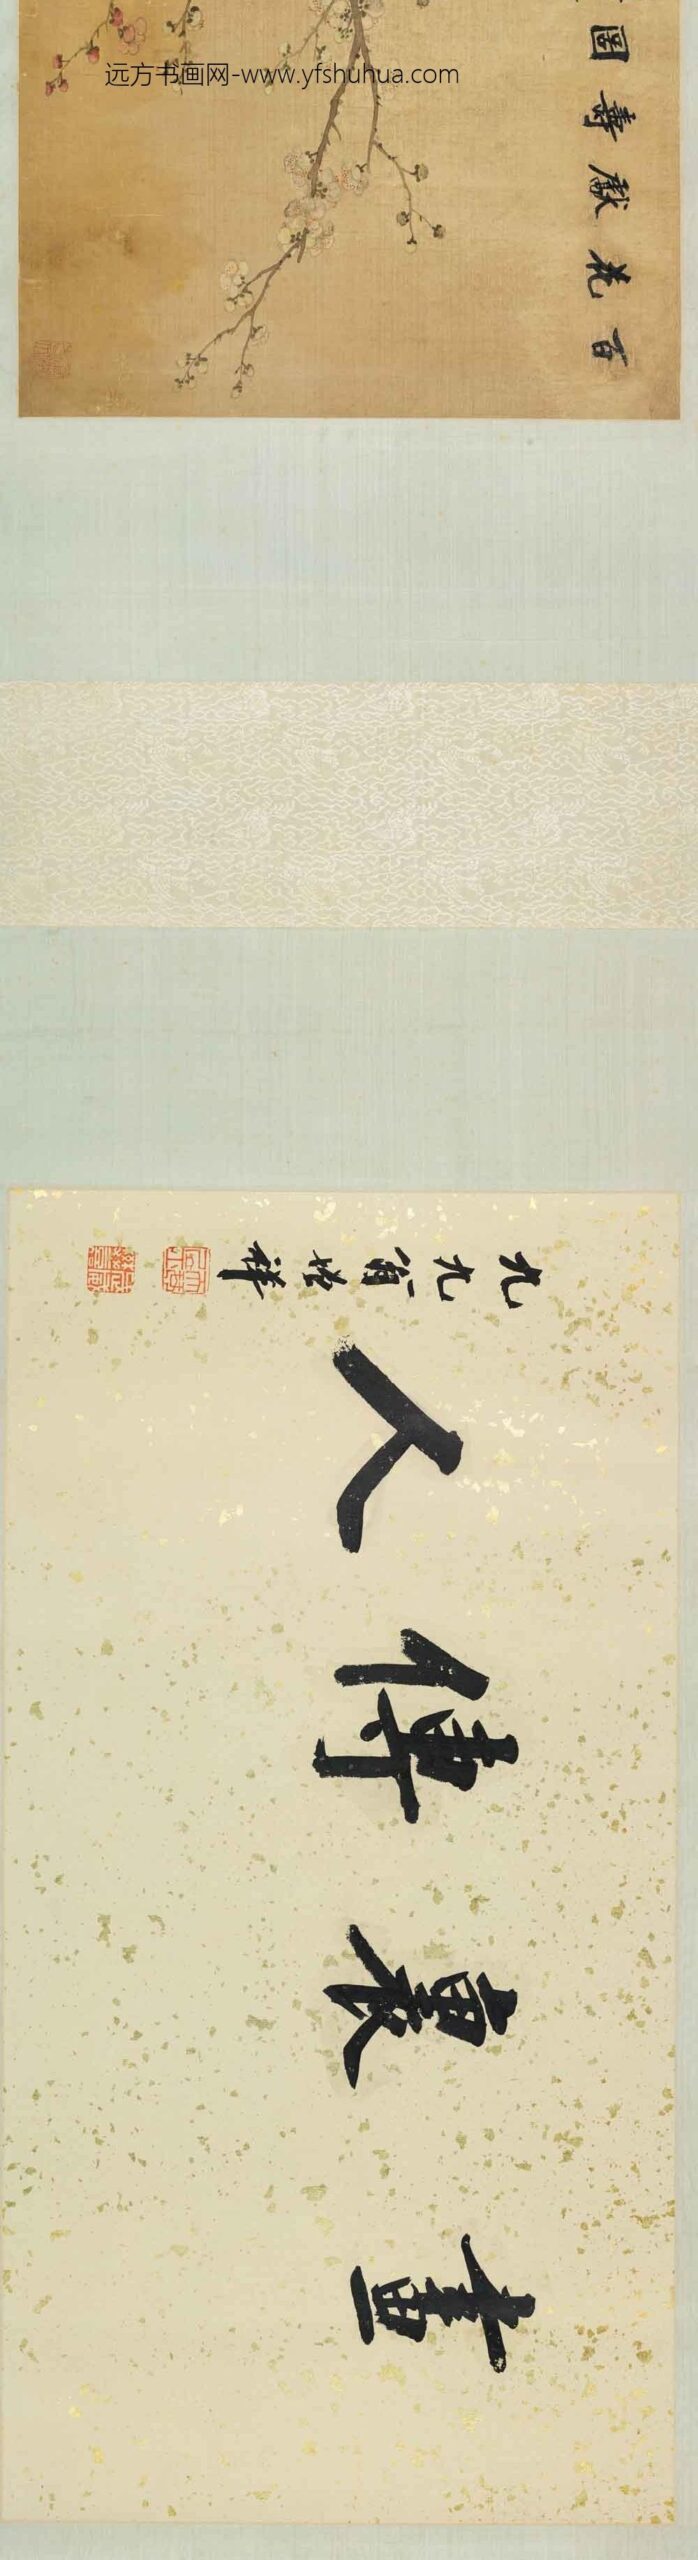 远方书画网-www.yfshuhua.com
百花獻壽圖
畫裏傳人
九九翁